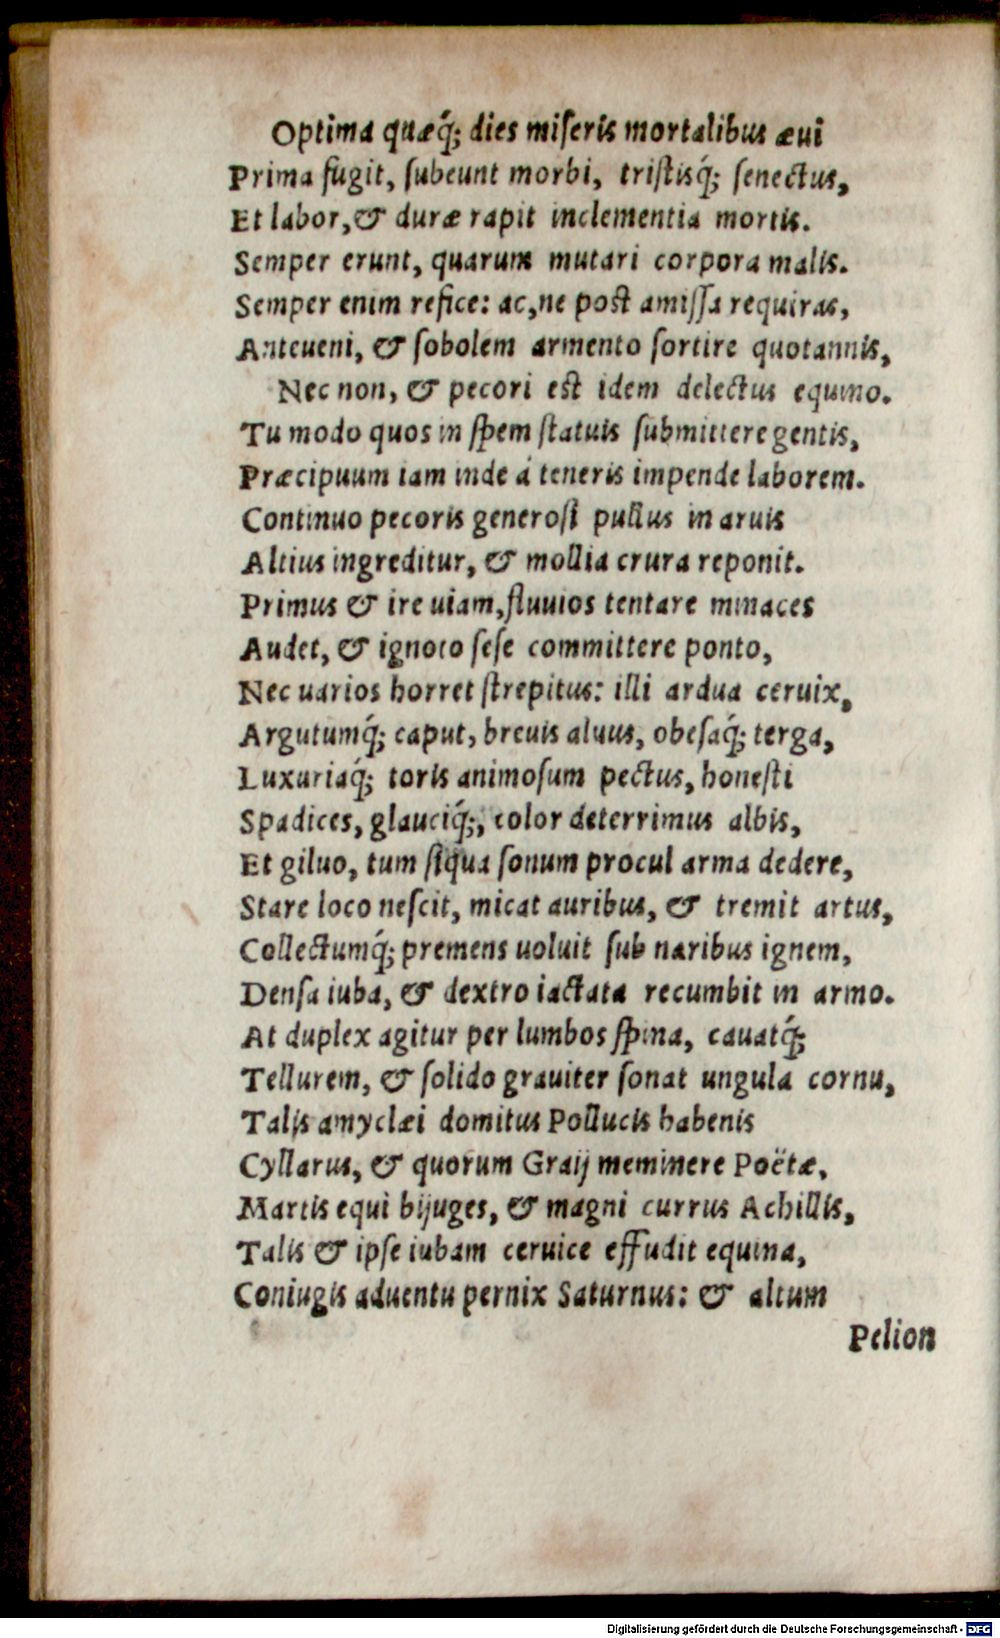 Optima quæq́; dies miſeris mortalibus æui
Prima fugit, ſubeunt morbi, triſtisq́; ſenectus,
Et labor, & duræ rapit inclementia mortis.
Semper erunt, quarum mutari corpora malis.
Semper enim refice: ac, ne poſt amiſſa requiras,
Anteueni, & ſobolem armento ſortire quotannis,
Nec non, & pecori eſt idem delectus equino.
Tu modo quos in ſpem ſtatuis ſubmittere gentis,
Præcipuum iam inde á teneris impende laborem.
Continuo pecoris generoſi pullus in aruis
Altius ingreditur, & mollia crura reponit.
Primus & ire uiam, fluuios tentare minaces
Audet, & ignoto ſeſe committere ponto,
Nec uarios horret ſtrepitus: illi ardua ceruix,
Argutumq́; caput, breuis aluus, obeſaq́; terga,
Luxuriaq́; toris animoſum pectus, honeſti
Spadices, glauciq́;, color deterrimus albis,
Et giluo, tum ſiqua ſonum procul arma dedere,
Stare loco neſcit, micat auribus, & tremit artus,
Collectumq́; premens uoluit ſub naribus ignem,
Denſa iuba, & dextro iactata recumbit in armo.
At duplex agitur per lumbos ſpina, cauatq́;
Tellurem, & ſolido grauiter ſonat ungula cornu,
Talis amyclæi domitus Pollucis habenis
Cyllarus, & quorum Graij meminere Poëtæ,
Martis equi bijuges, & magni currus Achillis,
Talis & ipſe iubam ceruice effudit equina,
Coniugis aduentu pernix Saturnus: & altum
Pelion
Digitalisierung gefördert durch die Deutsche Forschungsgemeinschaft - DFG